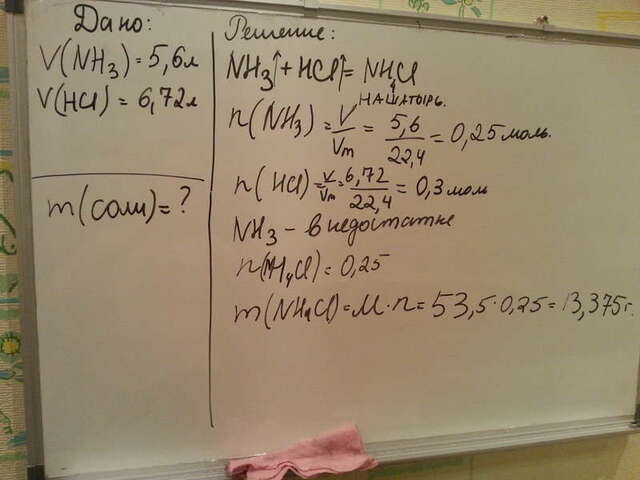 Дано:
V(NH₃) = 5,6л
V(HCl) = 6,72л
m(соли) = ?
Решение:
NH₃↑ + HCl↑ = NH₄Cl
НАШАТЫРЬ.
n(NH₃) = V/Vm = 5,6/22,4 = 0,25 моль.
n(HCl) = V/Vm = 6,72/22,4 = 0,3 моль
NH₃ - в недостатке
n(NH₄Cl) = 0,25
m(NH₄Cl) = M·n = 53,5·0,25 = 13,375г.